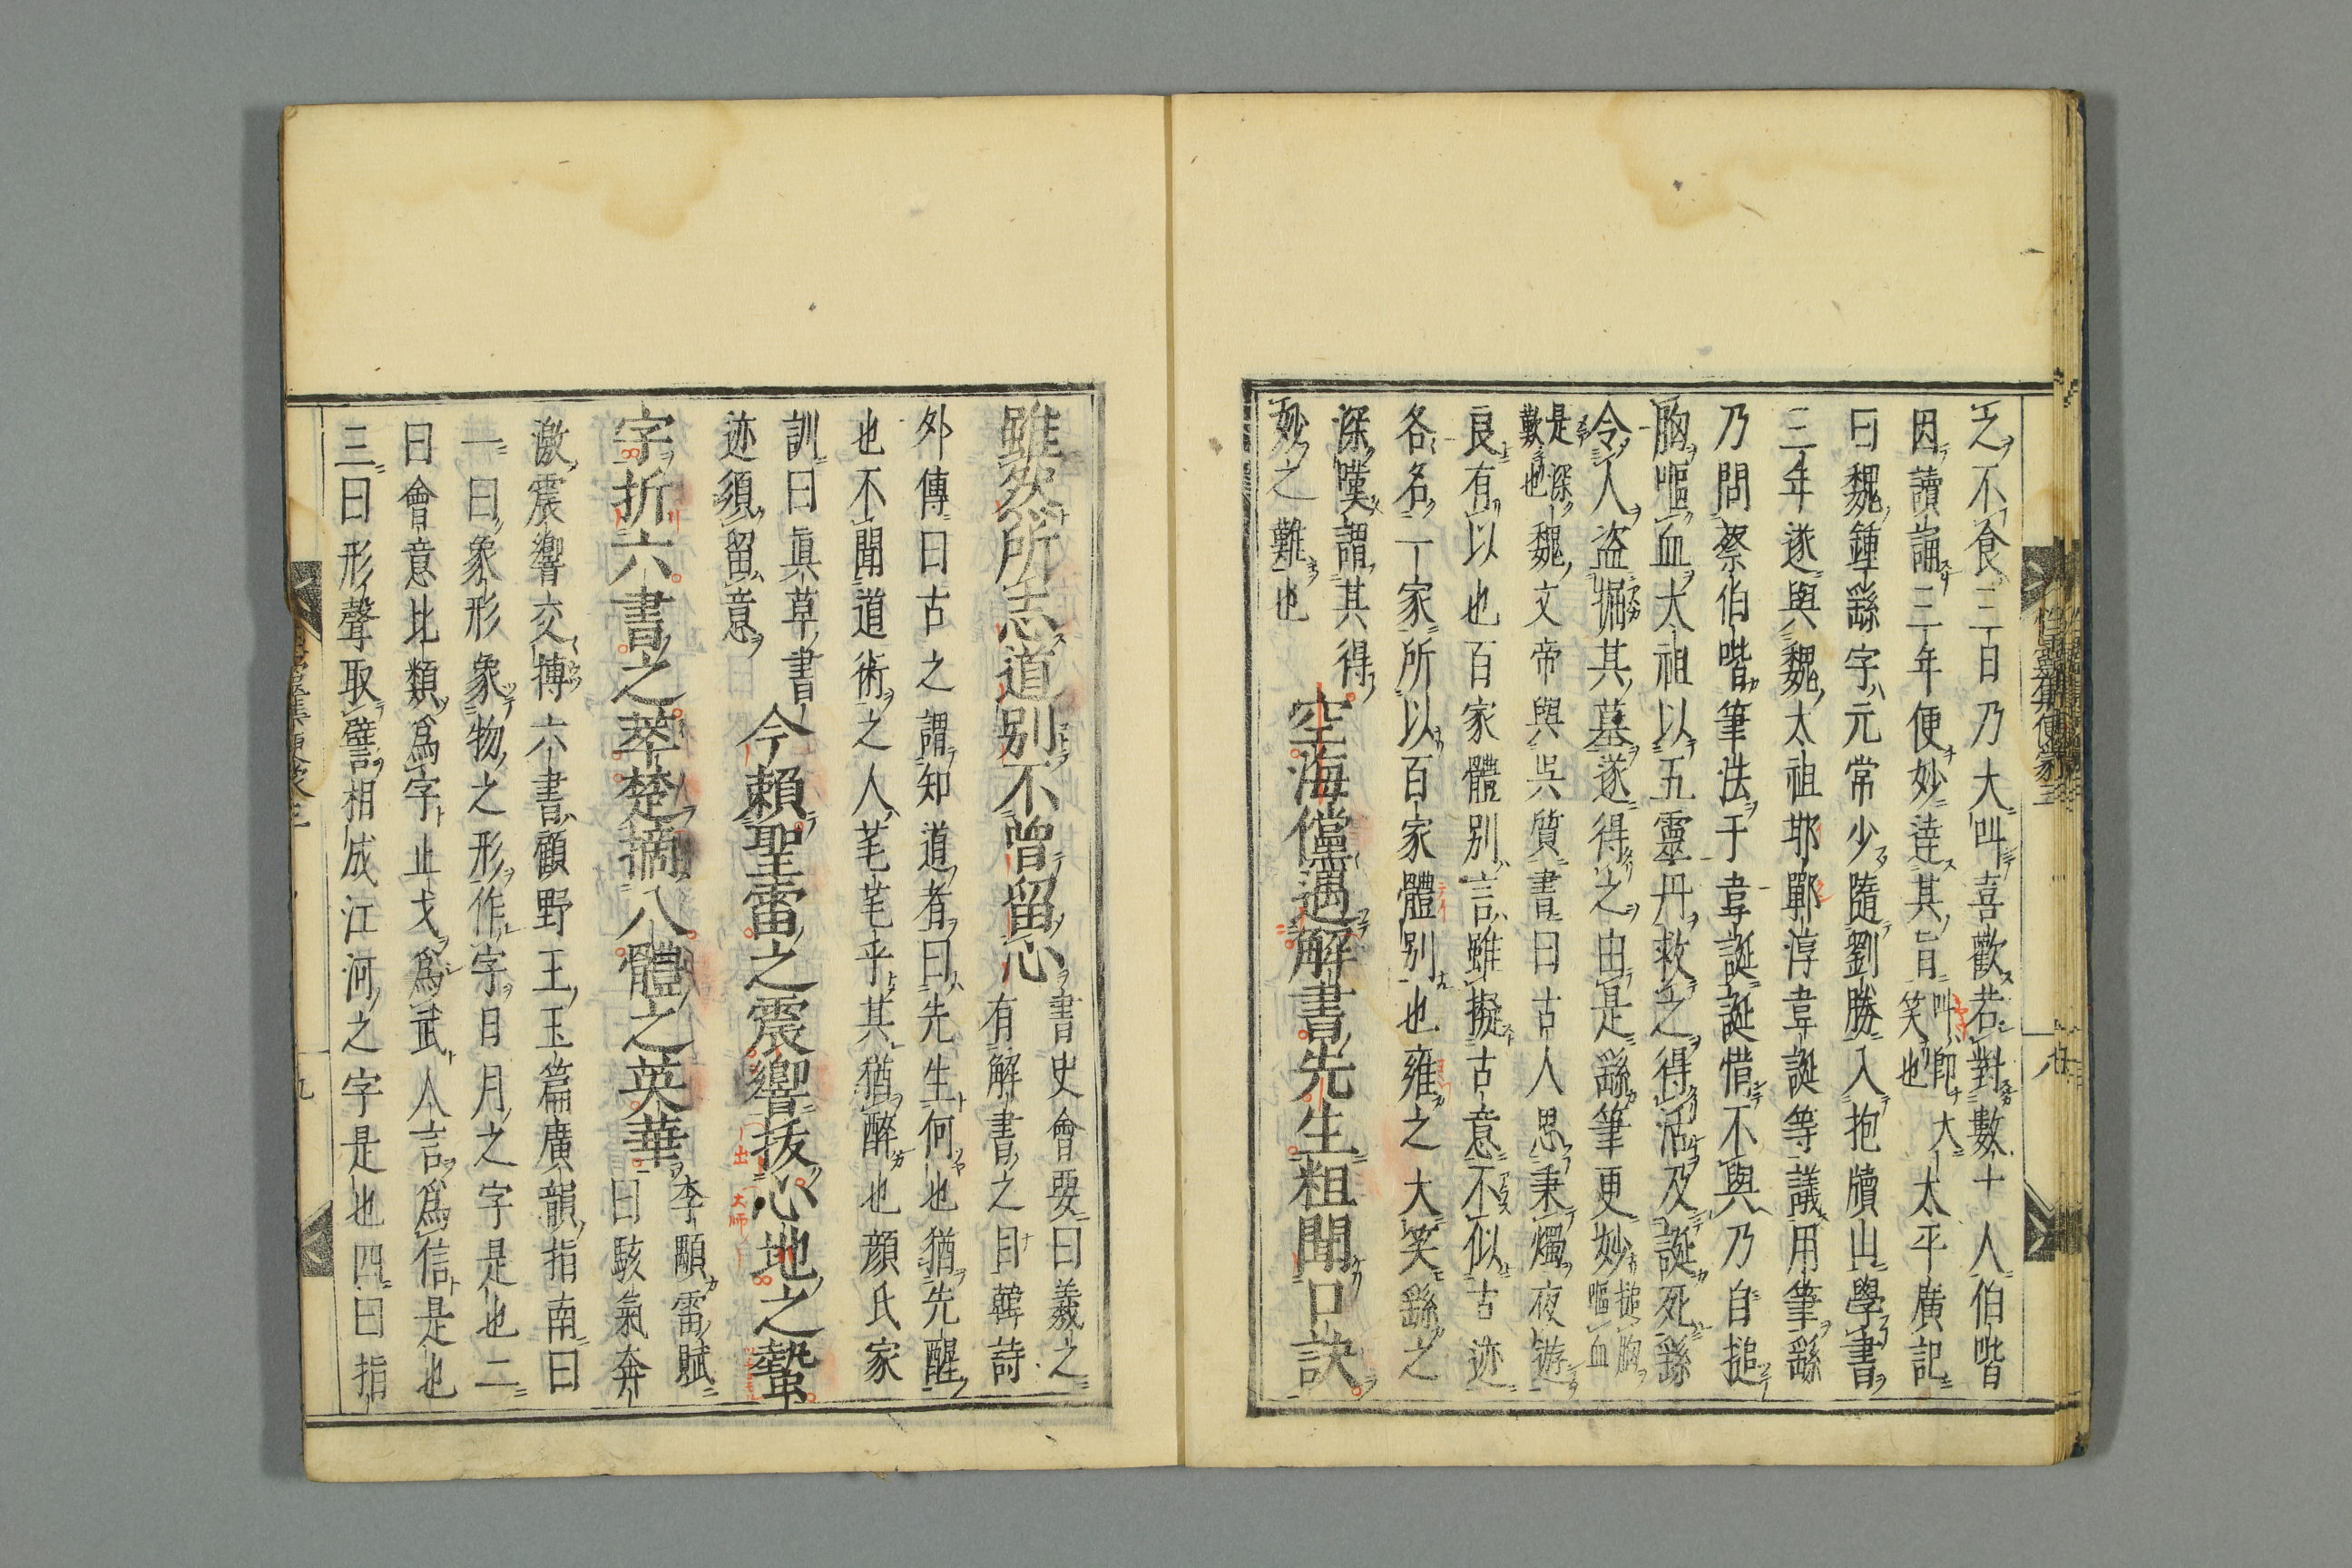 之不食三日乃大叫喜歡若對數十人伯喈
因讀誦三年便妙達其旨叫即大笑也太平廣記
曰魏鍾繇字元常少隨劉勝入抱犢山學書
三年遂與魏太祖邯鄲淳韋誕等議用筆繇
乃問蔡伯喈筆法于韋誕誕惜不與乃自搥
胸嘔血太祖以五靈丹救之得活及誕死繇
令人盜掘其墓遂得之由是繇筆更妙搥胸嘔血
是深歎也魏文帝與吳質書曰古人思秉燭夜遊
良有以也百家體別言雖擬古意不似古迹
各名一家所以百家體別也雍之大笑繇之
深嘆謂其得
妙之難也空海儻遇解書先生粗聞口訣
雖然所志道別不曾留心書史會要曰羲之
有解書之目韓詩
外傳曰古之謂知道者曰先生何也猶先醒
也不聞道術之人芼芼乎其猶醉也顔氏家
訓曰眞草書
迹須留意今賴聖雷之震響拔心地之蟄
字折六書之萃楚摘八體之英華李顒雷賦
曰駭氣奔
激震響交搏六書顧野王玉篇廣韻指南曰
一曰象形象物之形作字日月之字是也二
曰會意比類爲字止戈爲武人言爲信是也
三曰形聲取譬相成江河之字是也四曰指